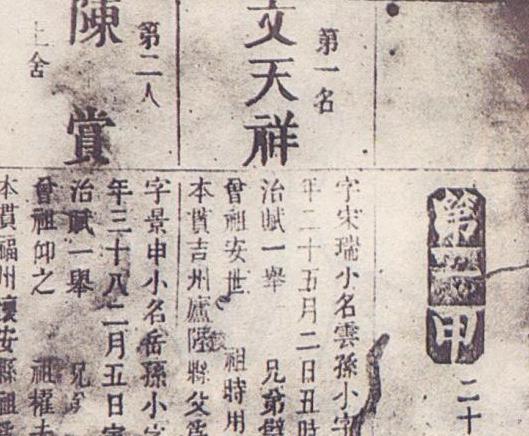 第一甲 二十
第一名
文天祥
字宋瑞小名雲孫小字
年二十五月二日丑時
治賦一舉 兄弟
曾祖安世 祖時用
本貫吉州廬陵縣父爲
第二人
陳賞
上舍
字景申小名岳孫小字
年三十八二月五日
治賦一舉 兄
曾祖仰之 祖權
本貫福州懷安縣祖